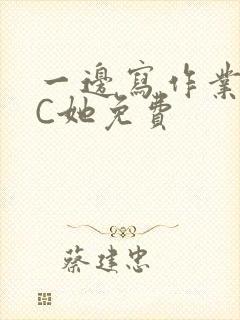 一邊寫作業
C她免費
蔡建忠